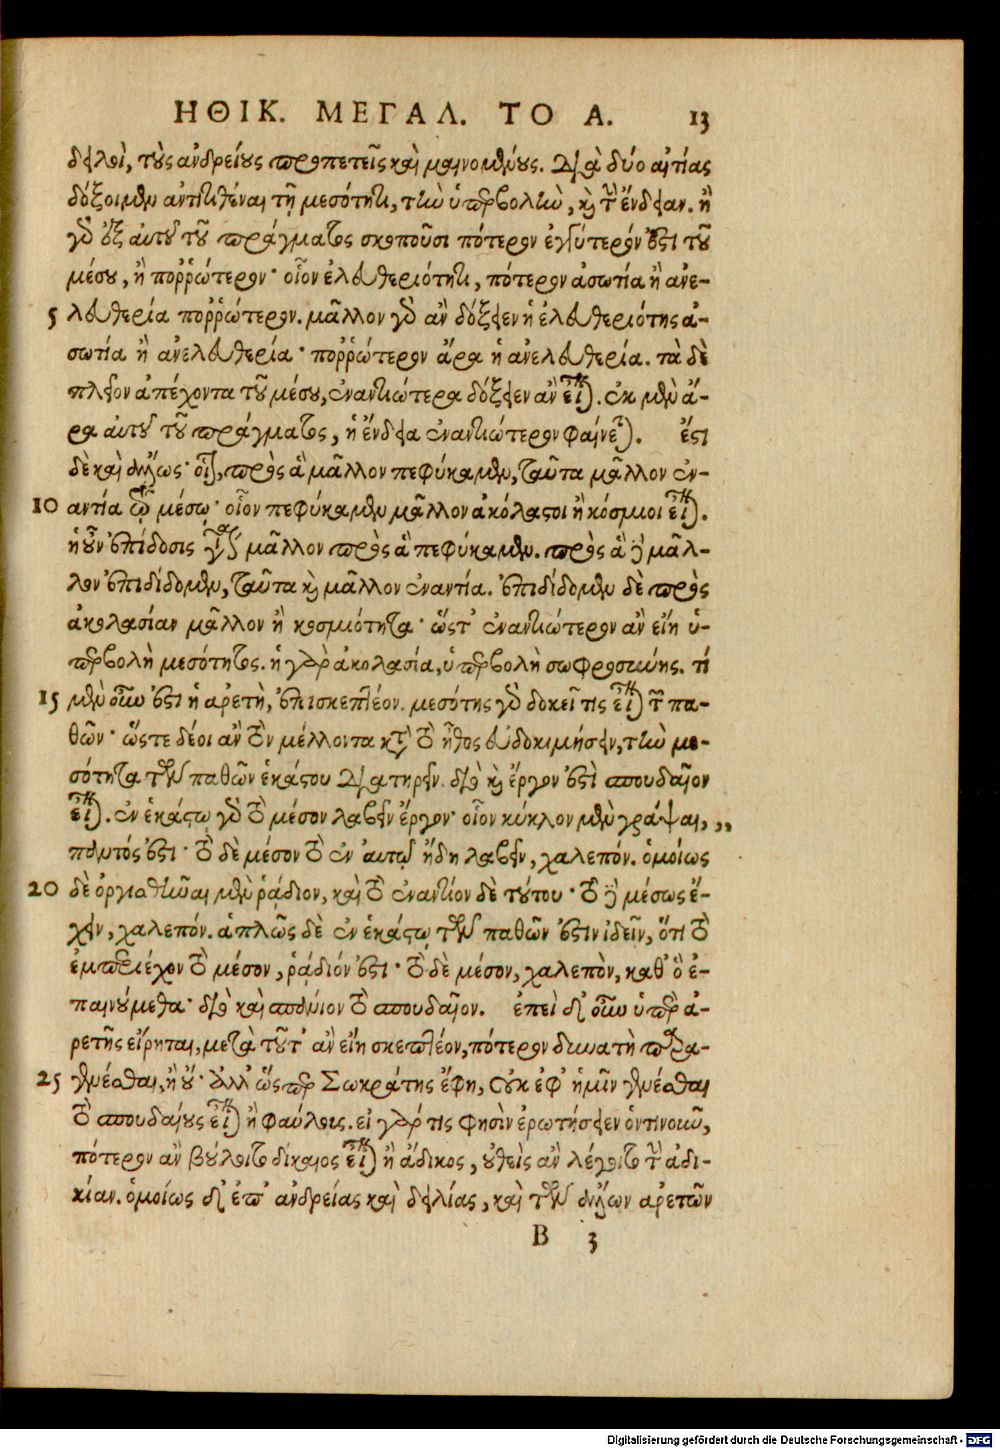 ΗΘΙΚ. ΜΕΓΑΛ. ΤΟ Α. 13
δειλοὶ, τοὺς ἀνδρείους προπετεῖς καὶ μαινομένους. Διὰ δύο αἰτίας
δόξοιμεν ἀντιτιθέναι τῇ μεσότητι, τὴν ὑπερβολὴν, καὶ τὴν ἔνδειαν. ἢ
γὰρ ἐξ αὐτοῦ τοῦ πράγματος σκοποῦσι πότερον ἐγγύτερόν ἐστι τοῦ
μέσου, ἢ ποῤῥώτερον· οἷον ἐλευθεριότητι, πότερον ἀσωτία ἢ ἀνε-
5 λευθερία ποῤῥώτερον. μᾶλλον γὰρ ἂν δόξειεν ἡ ἐλευθεριότης ἀ-
σωτία ἢ ἀνελευθερία· ποῤῥώτερον ἄρα ἡ ἀνελευθερία. τὰ δὲ
πλεῖον ἀπέχοντα τοῦ μέσου, ἐναντιώτερα δόξειεν ἂν εἶναι. ἐκ μὲν ἄ-
ρα αὐτοῦ τοῦ πράγματος, ἡ ἔνδεια ἐναντιώτερον φαίνεται. ἔστι
δὲ καὶ ἄλλως· οἷον, πρὸς ἃ μᾶλλον πεφύκαμεν, ταῦτα μᾶλλον ἐν-
10 αντία τῷ μέσῳ· οἷον πεφύκαμεν μᾶλλον ἀκόλαστοι ἢ κόσμιοι εἶναι.
ἡ οὖν ἐπίδοσις γίνεται μᾶλλον πρὸς ἃ πεφύκαμεν. πρὸς ἃ δὲ μᾶλ-
λον ἐπιδίδομεν, ταῦτα καὶ μᾶλλον ἐναντία. ἐπιδίδομεν δὲ πρὸς
ἀκολασίαν μᾶλλον ἢ κοσμιότητα· ὥστ' ἐναντιώτερον ἂν εἴη ὑ-
περβολὴ μεσότητος. ἡ γὰρ ἀκολασία, ὑπερβολὴ σωφροσύνης. τί
15 μὲν οὖν ἐστι ἡ ἀρετὴ, ἐπισκεπτέον. μεσότης γὰρ δοκεῖ τις εἶναι τῶν πα-
θῶν· ὥστε δέοι ἂν τὸν μέλλοντα κατὰ τὸ ἦθος εὐδοκιμήσειν, τὴν με-
σότητα τῶν παθῶν ἑκάστου διατηρεῖν. διὸ καὶ ἔργον ἐστὶ σπουδαῖον
εἶναι. ἐν ἑκάστῳ γὰρ τὸ μέσον λαβεῖν ἔργον· οἷον κύκλον μὲν γράψαι, ,,
παντός ἐστι· τὸ δὲ μέσον τὸ ἐν αὐτῷ ἤδη λαβεῖν, χαλεπόν. ὁμοίως
20 δὲ ὀργισθῆναι μὲν ῥᾴδιον, καὶ τὸ ἐναντίον δὲ τούτου· τὸ δὲ μέσως ἔ-
χειν, χαλεπόν. ἁπλῶς δὲ ἐν ἑκάστῳ τῶν παθῶν ἐστιν ἰδεῖν, ὅτι τὸ
ἐμπεριέχον τὸ μέσον, ῥᾴδιόν ἐστι· τὸ δὲ μέσον, χαλεπὸν, καθ' ὃ ἐ-
παινούμεθα· διὸ καὶ σπάνιον τὸ σπουδαῖον. ἐπεὶ δ' οὖν ὑπὲρ ἀ-
ρετῆς εἴρηται, μετὰ τοῦτ' ἂν εἴη σκεπτέον, πότερον δυνατὴ παρα-
25 γενέσθαι, ἢ οὔ· ἀλλ' ὥσπερ Σωκράτης ἔφη, οὐκ ἐφ' ἡμῖν γενέσθαι
τὸ σπουδαίους εἶναι ἢ φαύλους. εἰ γάρ τις φησὶν ἐρωτήσειεν ὁντινοῦν,
πότερον ἂν βούλοιτο δίκαιος εἶναι ἢ ἄδικος, οὐθεὶς ἂν λέγοιτο τὴν ἀδι-
κίαν. ὁμοίως δ' ἐπ' ἀνδρείας καὶ δειλίας, καὶ τῶν ἄλλων ἀρετῶν
B 3
Digitalisierung gefördert durch die Deutsche Forschungsgemeinschaft - DFG